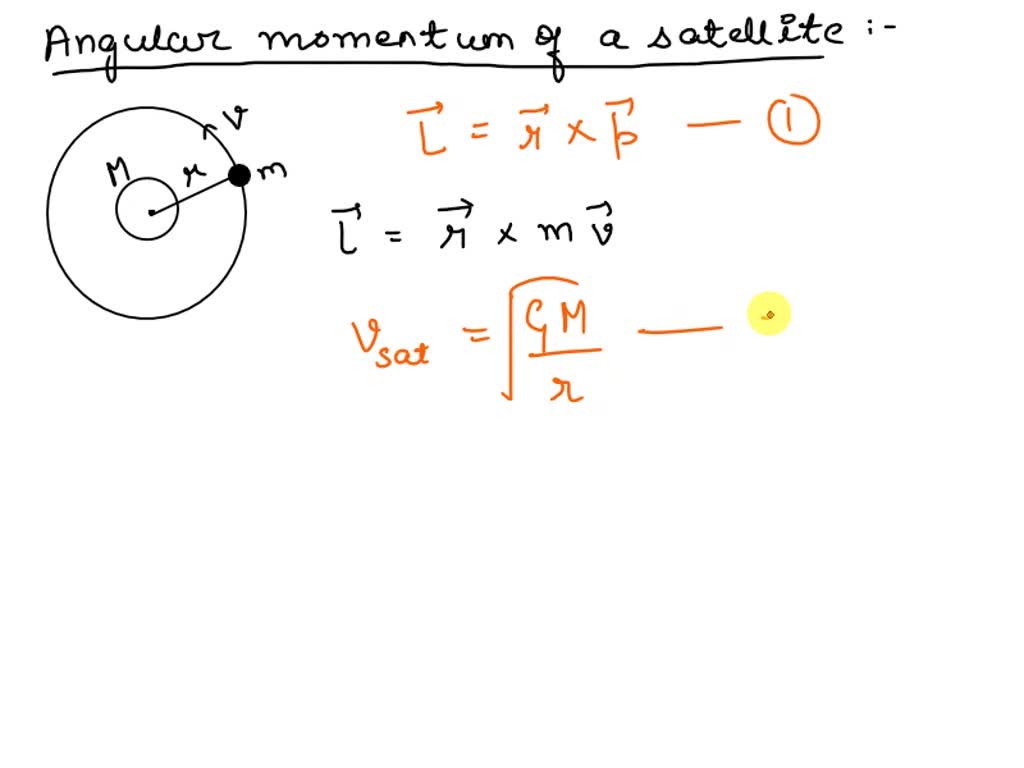 Angular momentum of a satellite :-
v
M r m
L⃗ = r⃗ × p⃗ — ①
L⃗ = r⃗ × m v⃗
v_sat = √(GM/r) —